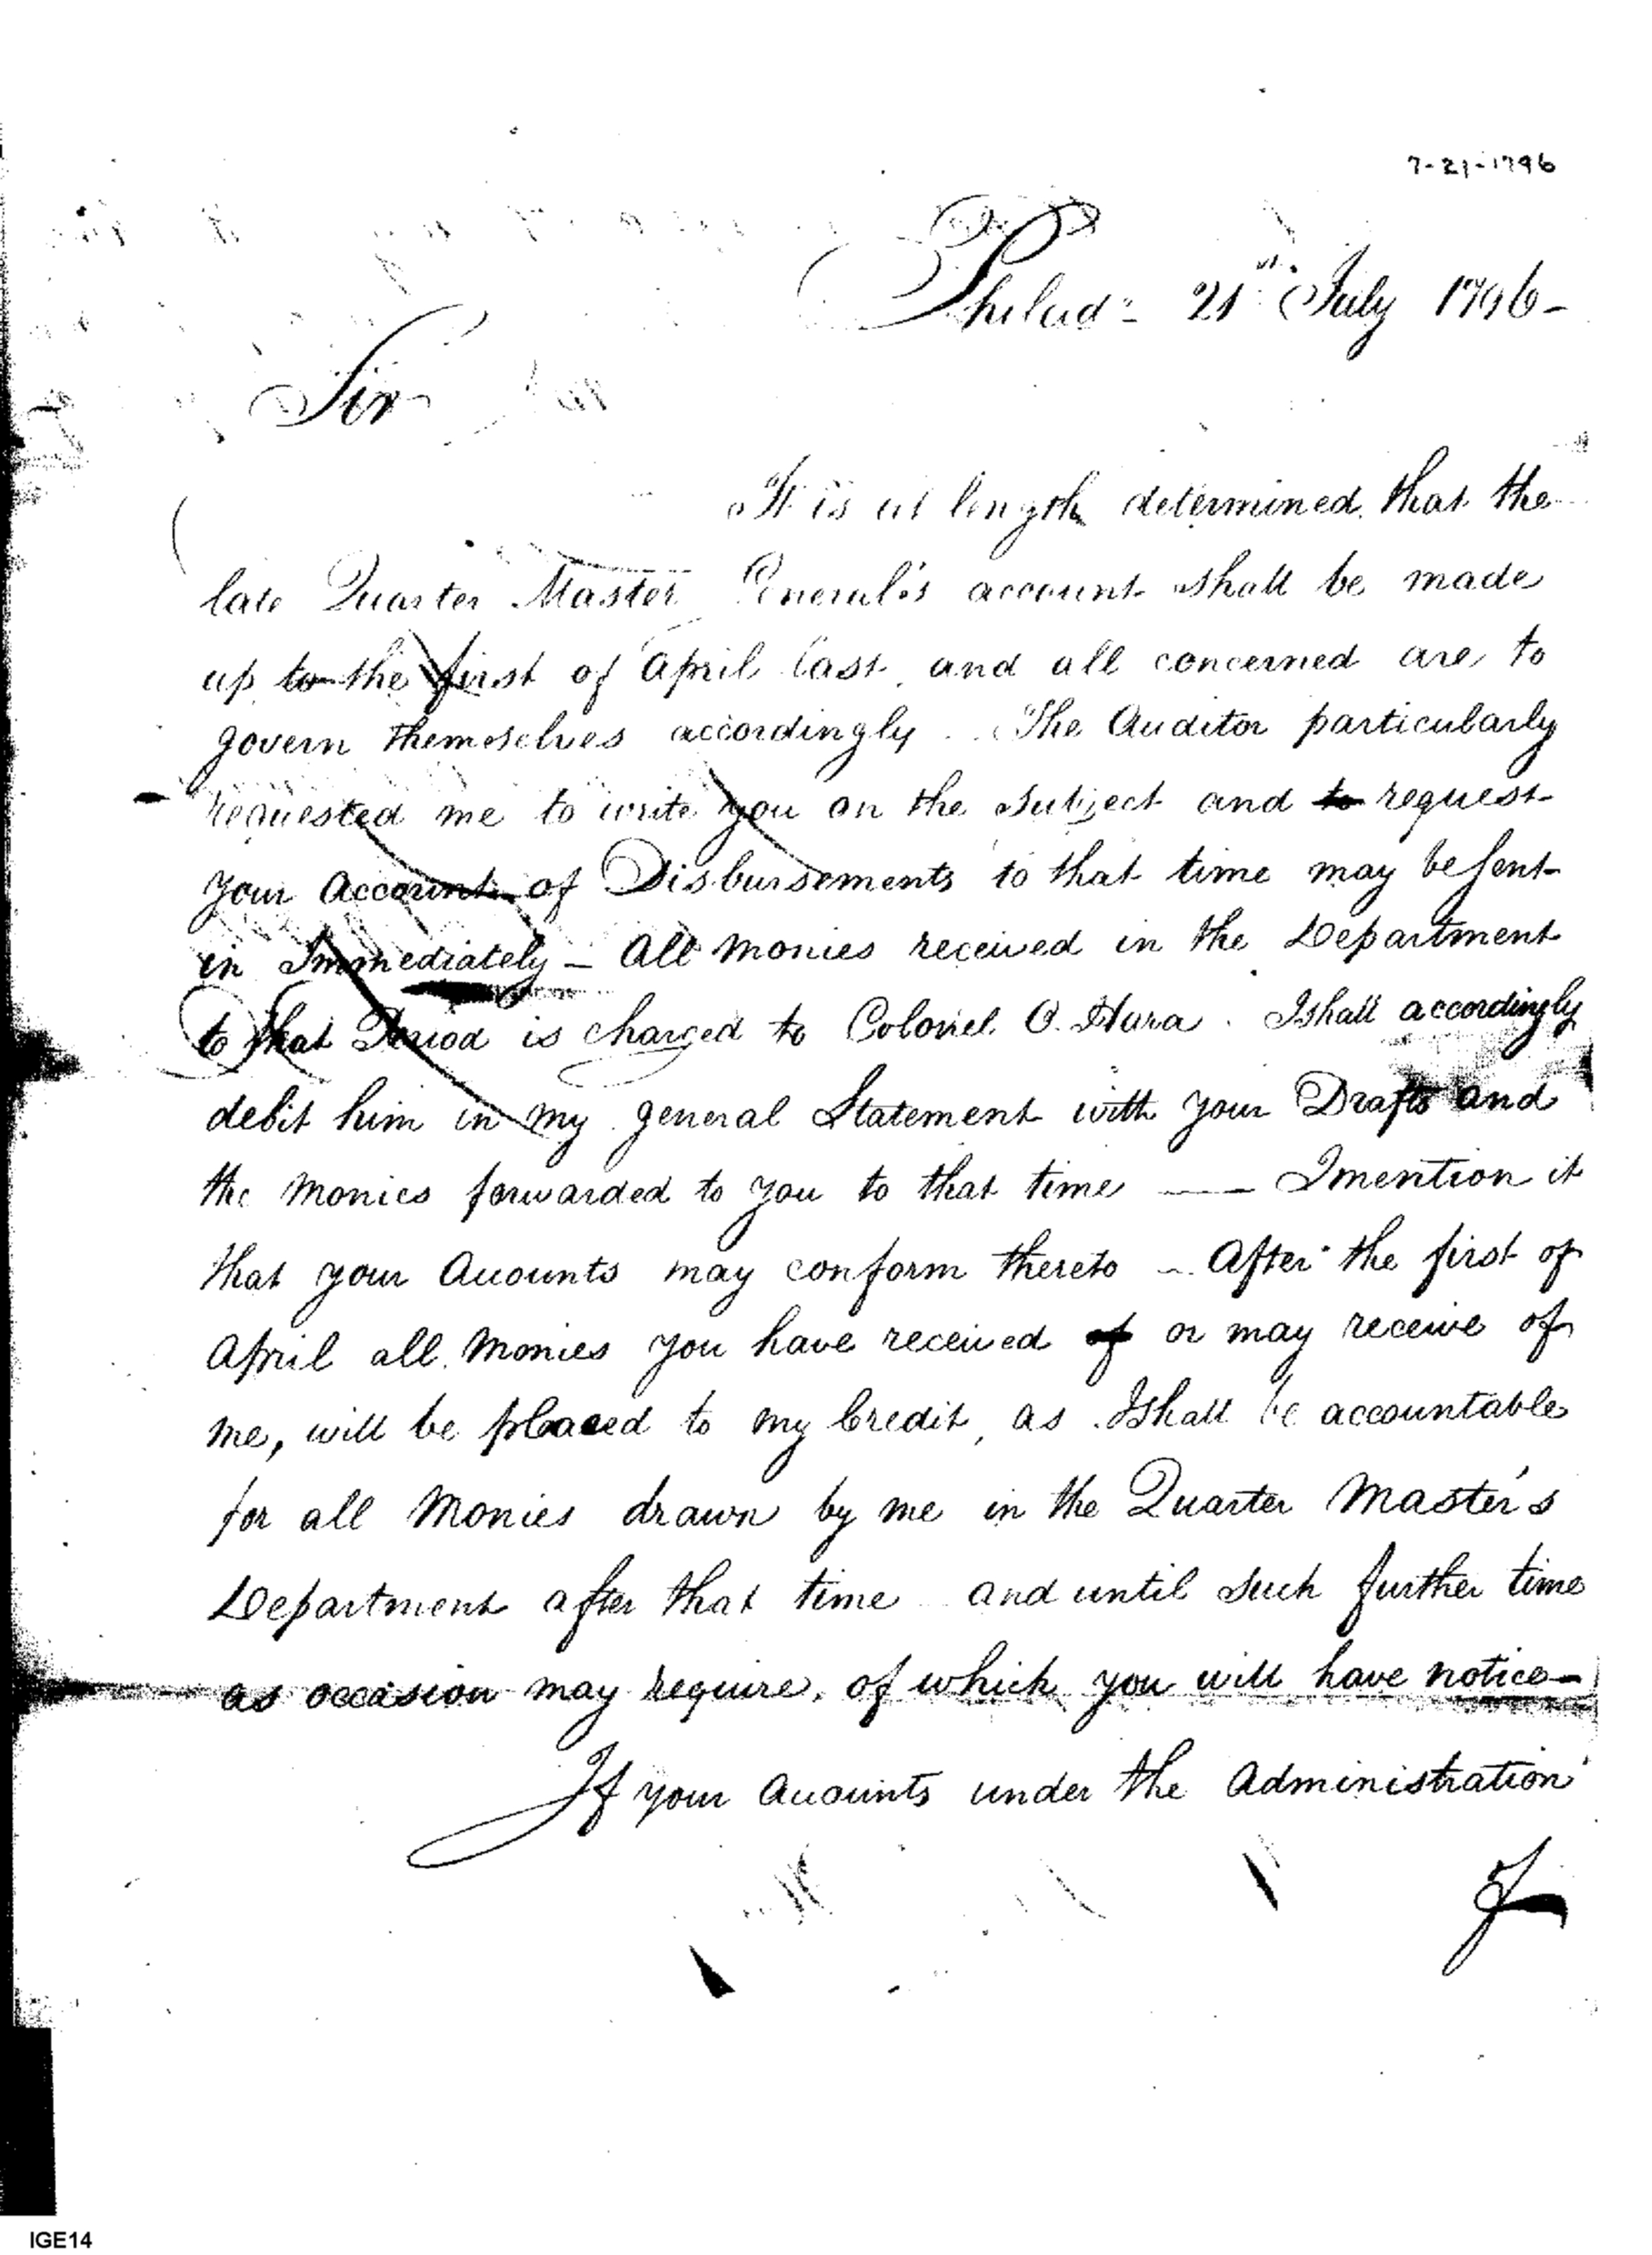 7-21-1796
Philada 21st July 1796-
Sir
It is at length determined that the
late Quarter Master General's account shall be made
up to the first of April last, and all concerned are to
govern themselves accordingly. The Auditor particularly
requested me to write you on the subject and to request
your Account of Disbursements to that time may be sent
in Immediately - All monies received in the Department
to that Period is charged to Colonel O.Hara. I shall accordingly
debit him in my general Statement with your Drafts and
the monies forwarded to you to that time —— I mention it
that your Accounts may conform thereto - After the first of
April all monies you have received of or may receive of
me, will be placed to my Credit, as I shall be accountable
for all Monies drawn by me in the Quarter Master's
Department after that time and until such further time
as occasion may require, of which you will have notice-
If your Accounts under the Administration
of
IGE14